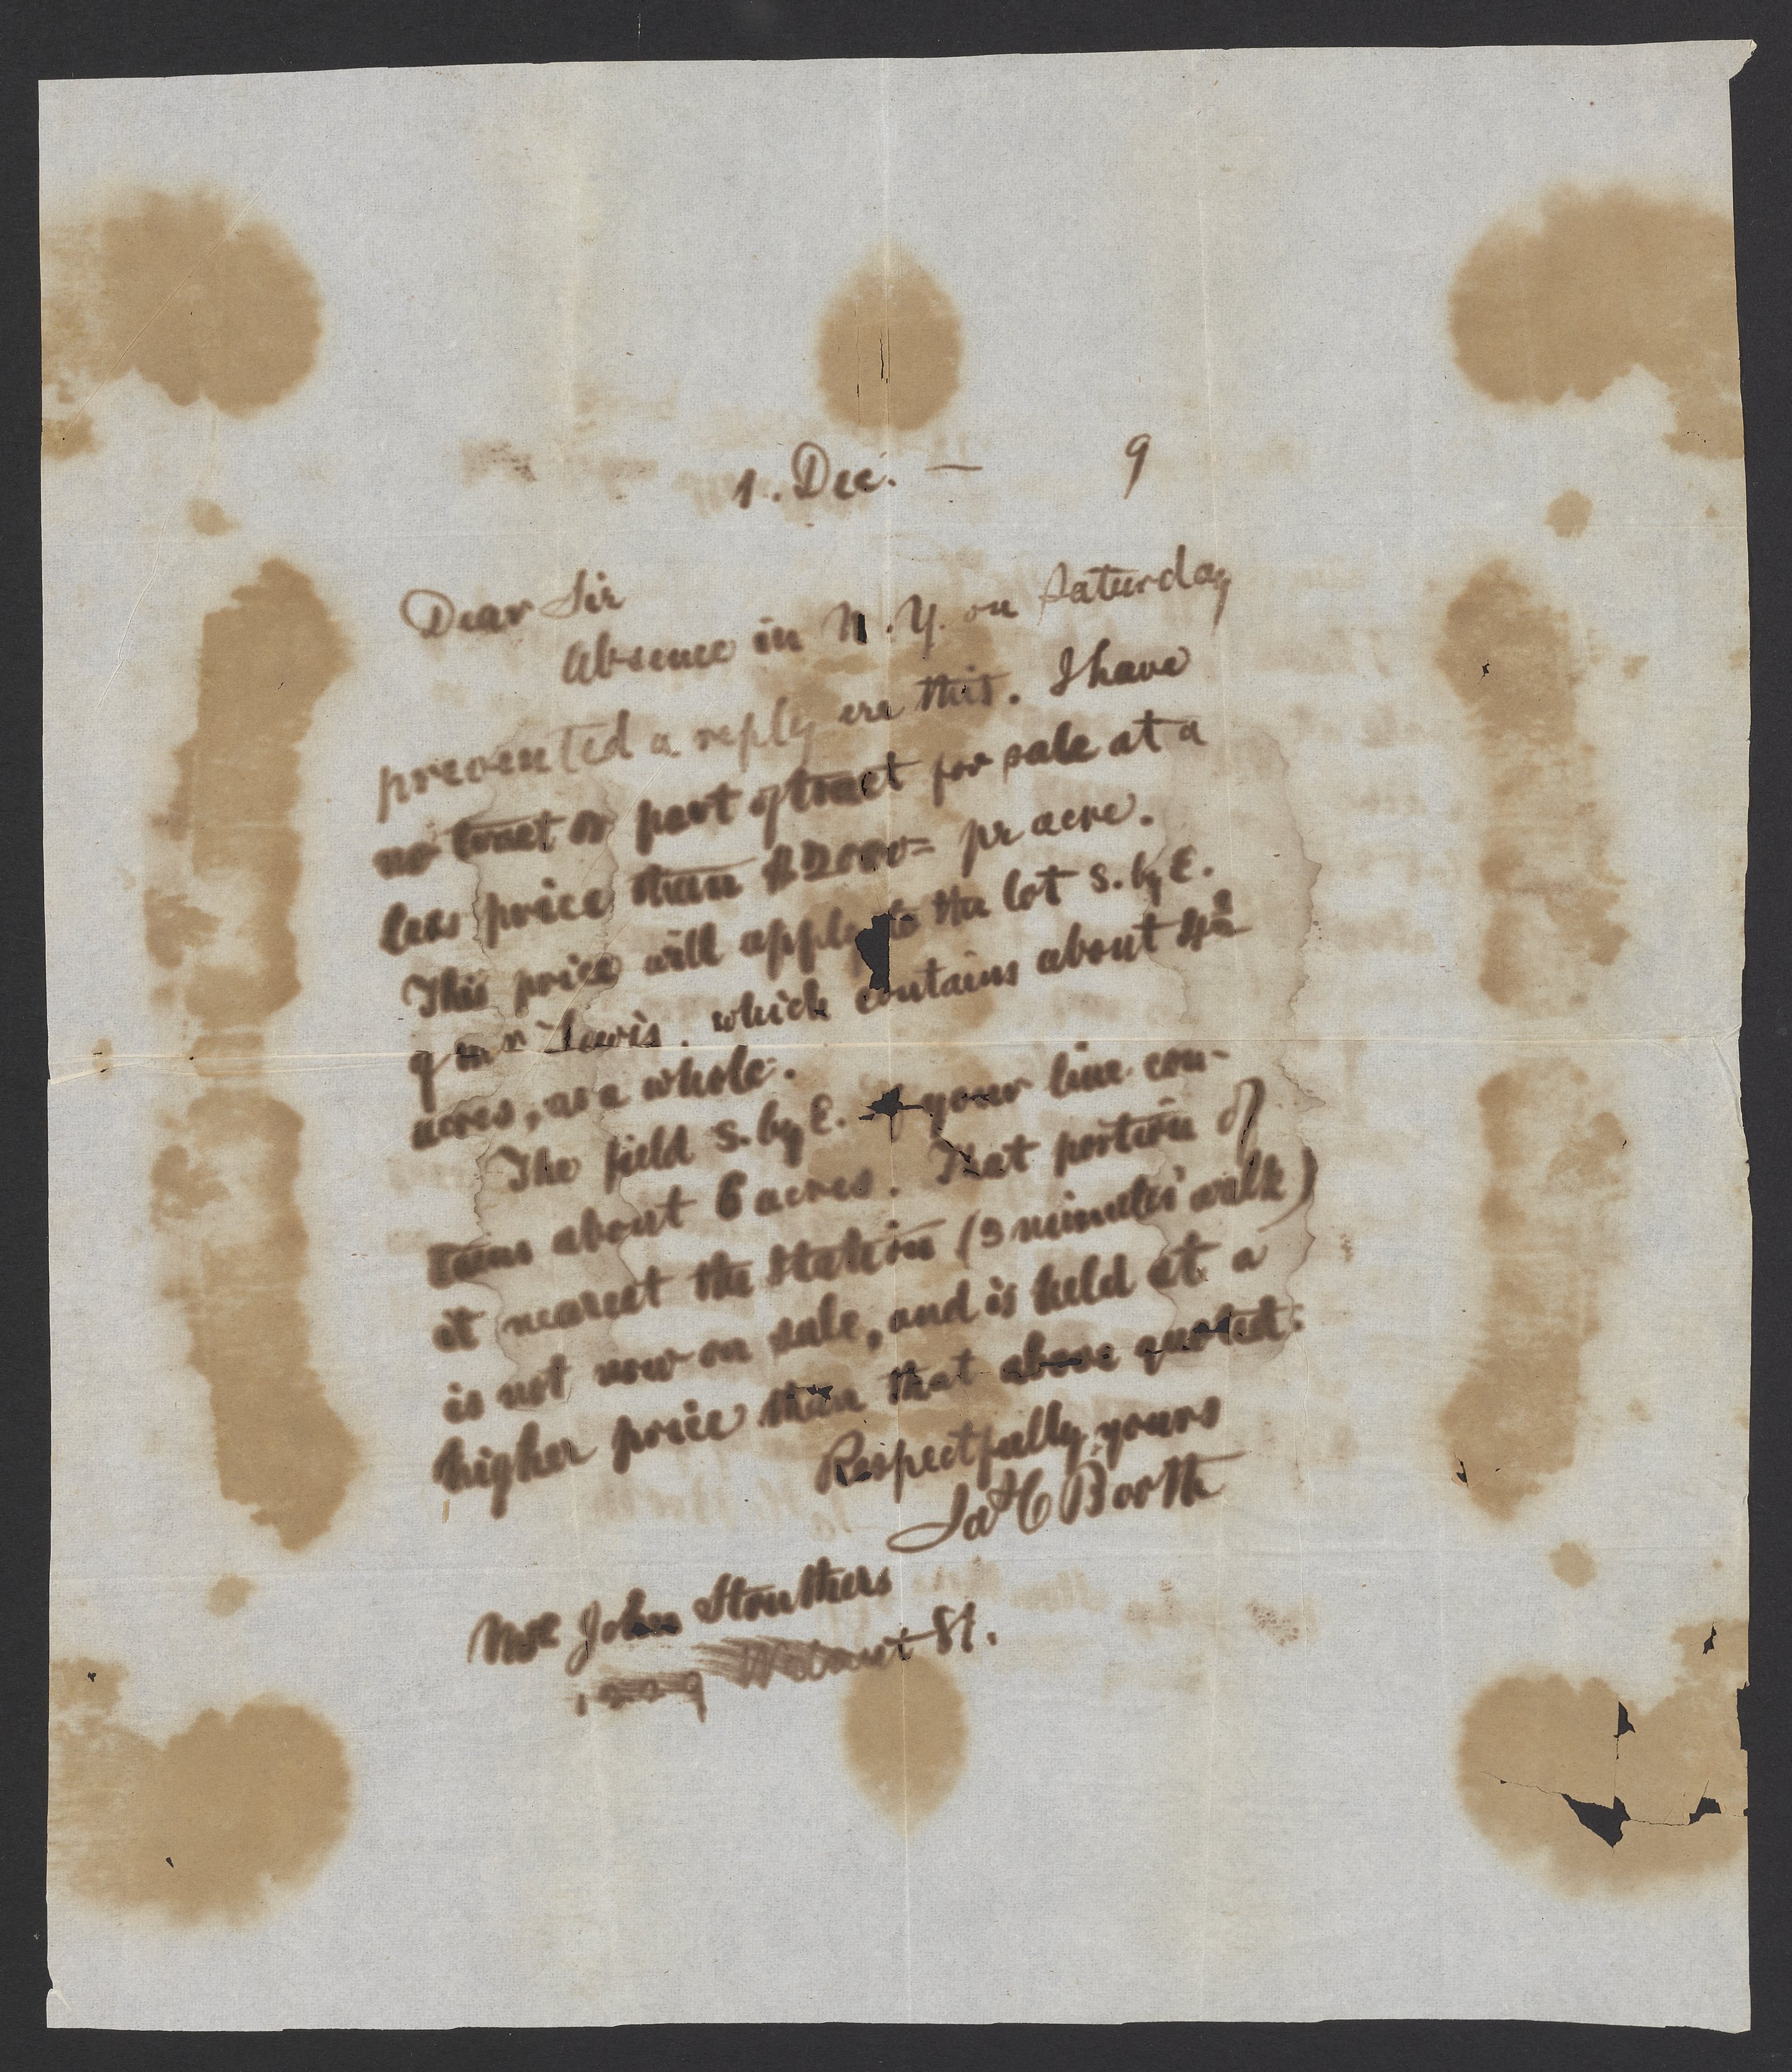 1. Dec. — 9
Dear Sir
Absence in N.Y. on Saturday
prevented a reply ere this. I have
no tract or part of tract for sale at a
less price than $2000= pr acre.
This price will apply to the lot S. by E.
of Mr Lewis, which contains about
acres, as a whole.
The field S. by E. of your line con-
tains about 6 acres. That portion of
it nearest the station (3 minutes' walk)
is not now on sale, and is held at a
higher price than that above quoted.
Respectfully, yours
Jas C Booth
Mr John Struthers
1229 Walnut St.